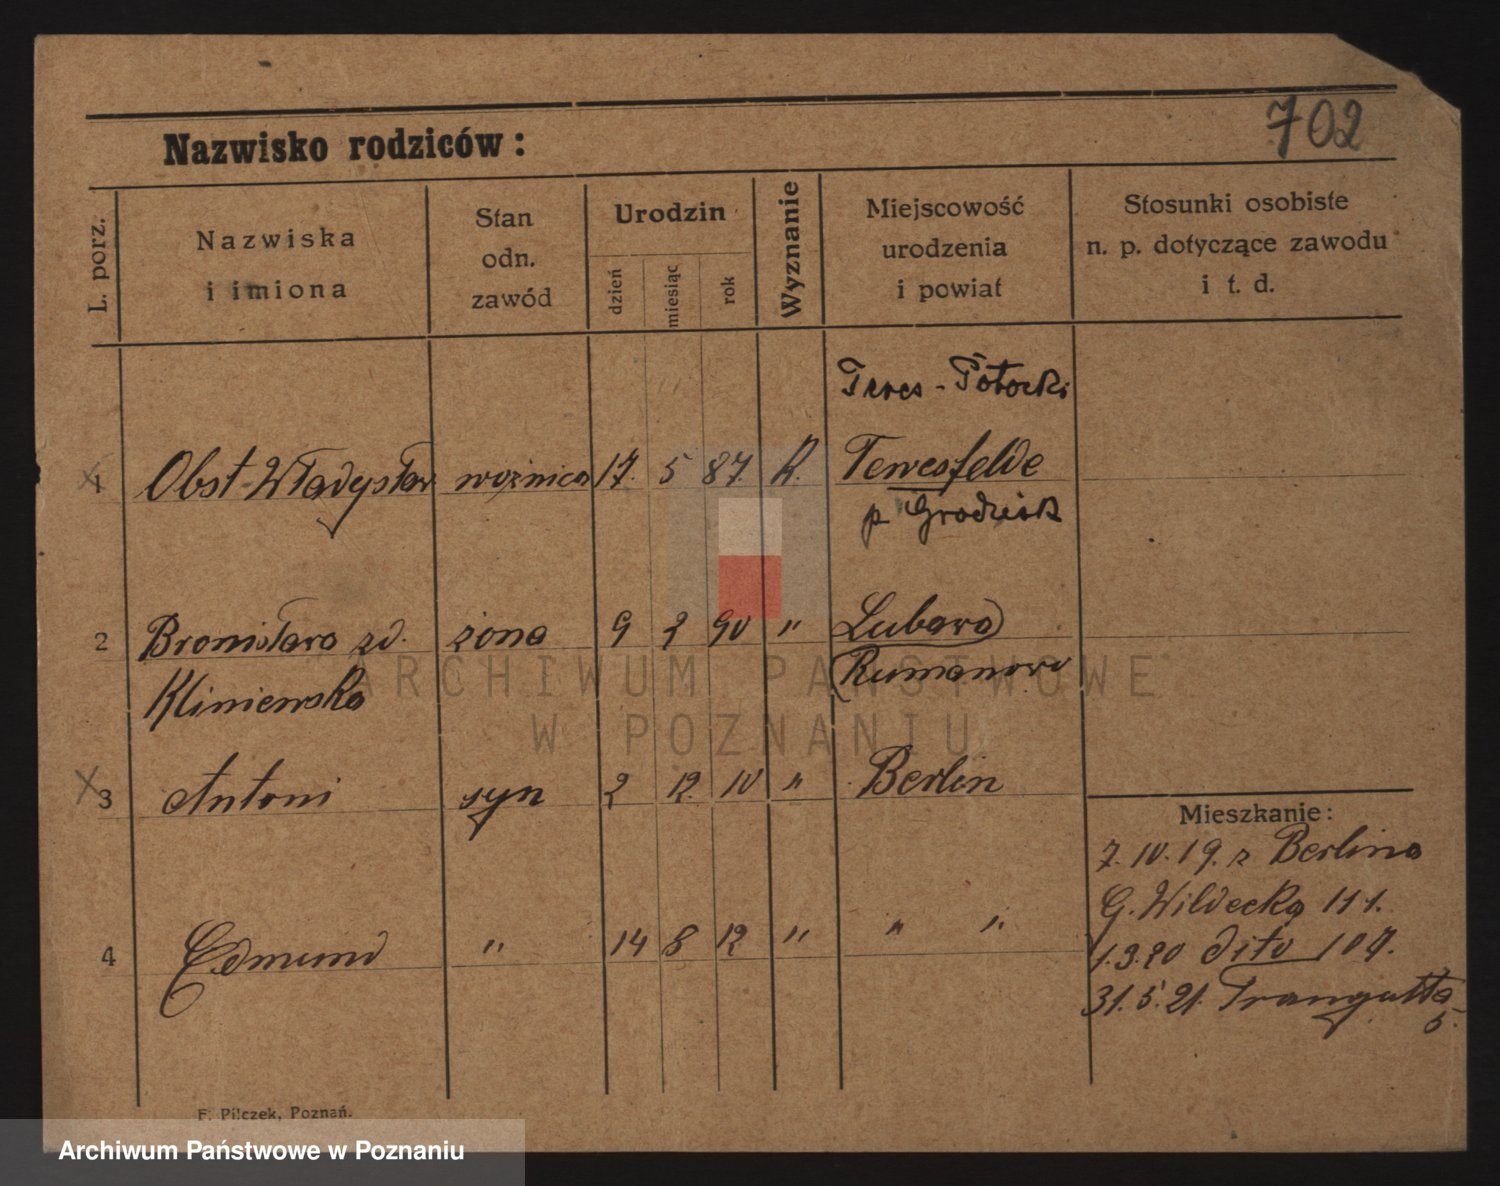 702
Nazwisko rodziców:
L. porz.
Nazwiska
i imiona
Stan
odn.
zawód
Urodzin
dzień
miesiąc
rok
Wyznanie
Miejscowość
urodzenia
i powiat
Stosunki osobiste
n. p. dotyczące zawodu
i t. d.
Potocki
1 Obst Władysław woźnica 17. 5 87. R. Tewesfelde
p Grodzisk
2 Bronisława zd. żona 9 2 90 " Lubowo
Kliniewska
3 Antoni syn 2 12. 10 " Berlin
Mieszkanie:
7. 10. 19. z Berlina
G. Wildecka 111.
4 Edmund " 14 8 12 " " "
1.3.20 dito 107.
31. 5. 21. Traugutta
5.
F. Pilczek, Poznań.
ARCHIWUM PAŃSTWOWE
W POZNANIU
Archiwum Państwowe w Poznaniu